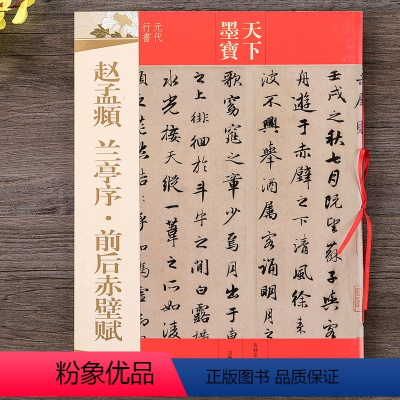 元代
行書
天下
墨寶
赵孟頫 兰亭序·前后赤壁赋
壬戌之秋七月既望蘇子與客
舟遊于赤壁之下清風徐来
波不興舉酒属客誦明月
歌窈窕之章少焉月出于東
之上徘徊於斗牛之間白露横
水光接天縱一葦之所如凌
粉象优品